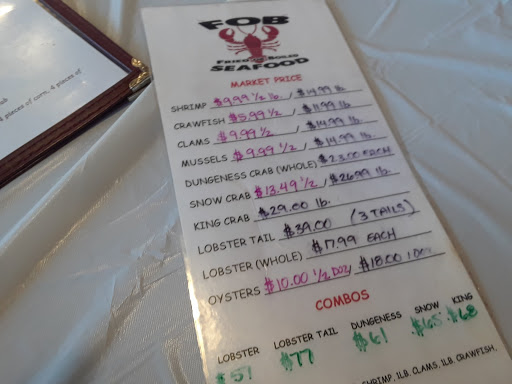 FOB
FRIED OR BOILED
SEAFOOD
MARKET PRICE
SHRIMP $9.99 1/2 lb / $14.99 lb
CRAWFISH $5.99 1/2 / $11.99 lb
CLAMS $9.99 1/2 / $14.99 lb.
MUSSELS $9.99 1/2 / $14.99 lb.
DUNGENESS CRAB (WHOLE) $23.00 EACH
SNOW CRAB $13.49 1/2 / $26.99 lb.
KING CRAB $29.00 lb.
LOBSTER TAIL $39.00 (3 TAILS)
LOBSTER (WHOLE) $17.99 EACH
OYSTERS $10.00 1/2 DOZ / $18.00 1 DOZ
COMBOS
LOBSTER LOBSTER TAIL DUNGENESS SNOW KING
$51 $77 $61 $65 $68
SHRIMP, 1LB. CLAMS, 1LB. CRAWFISH,
pieces of corn, 4 pieces of